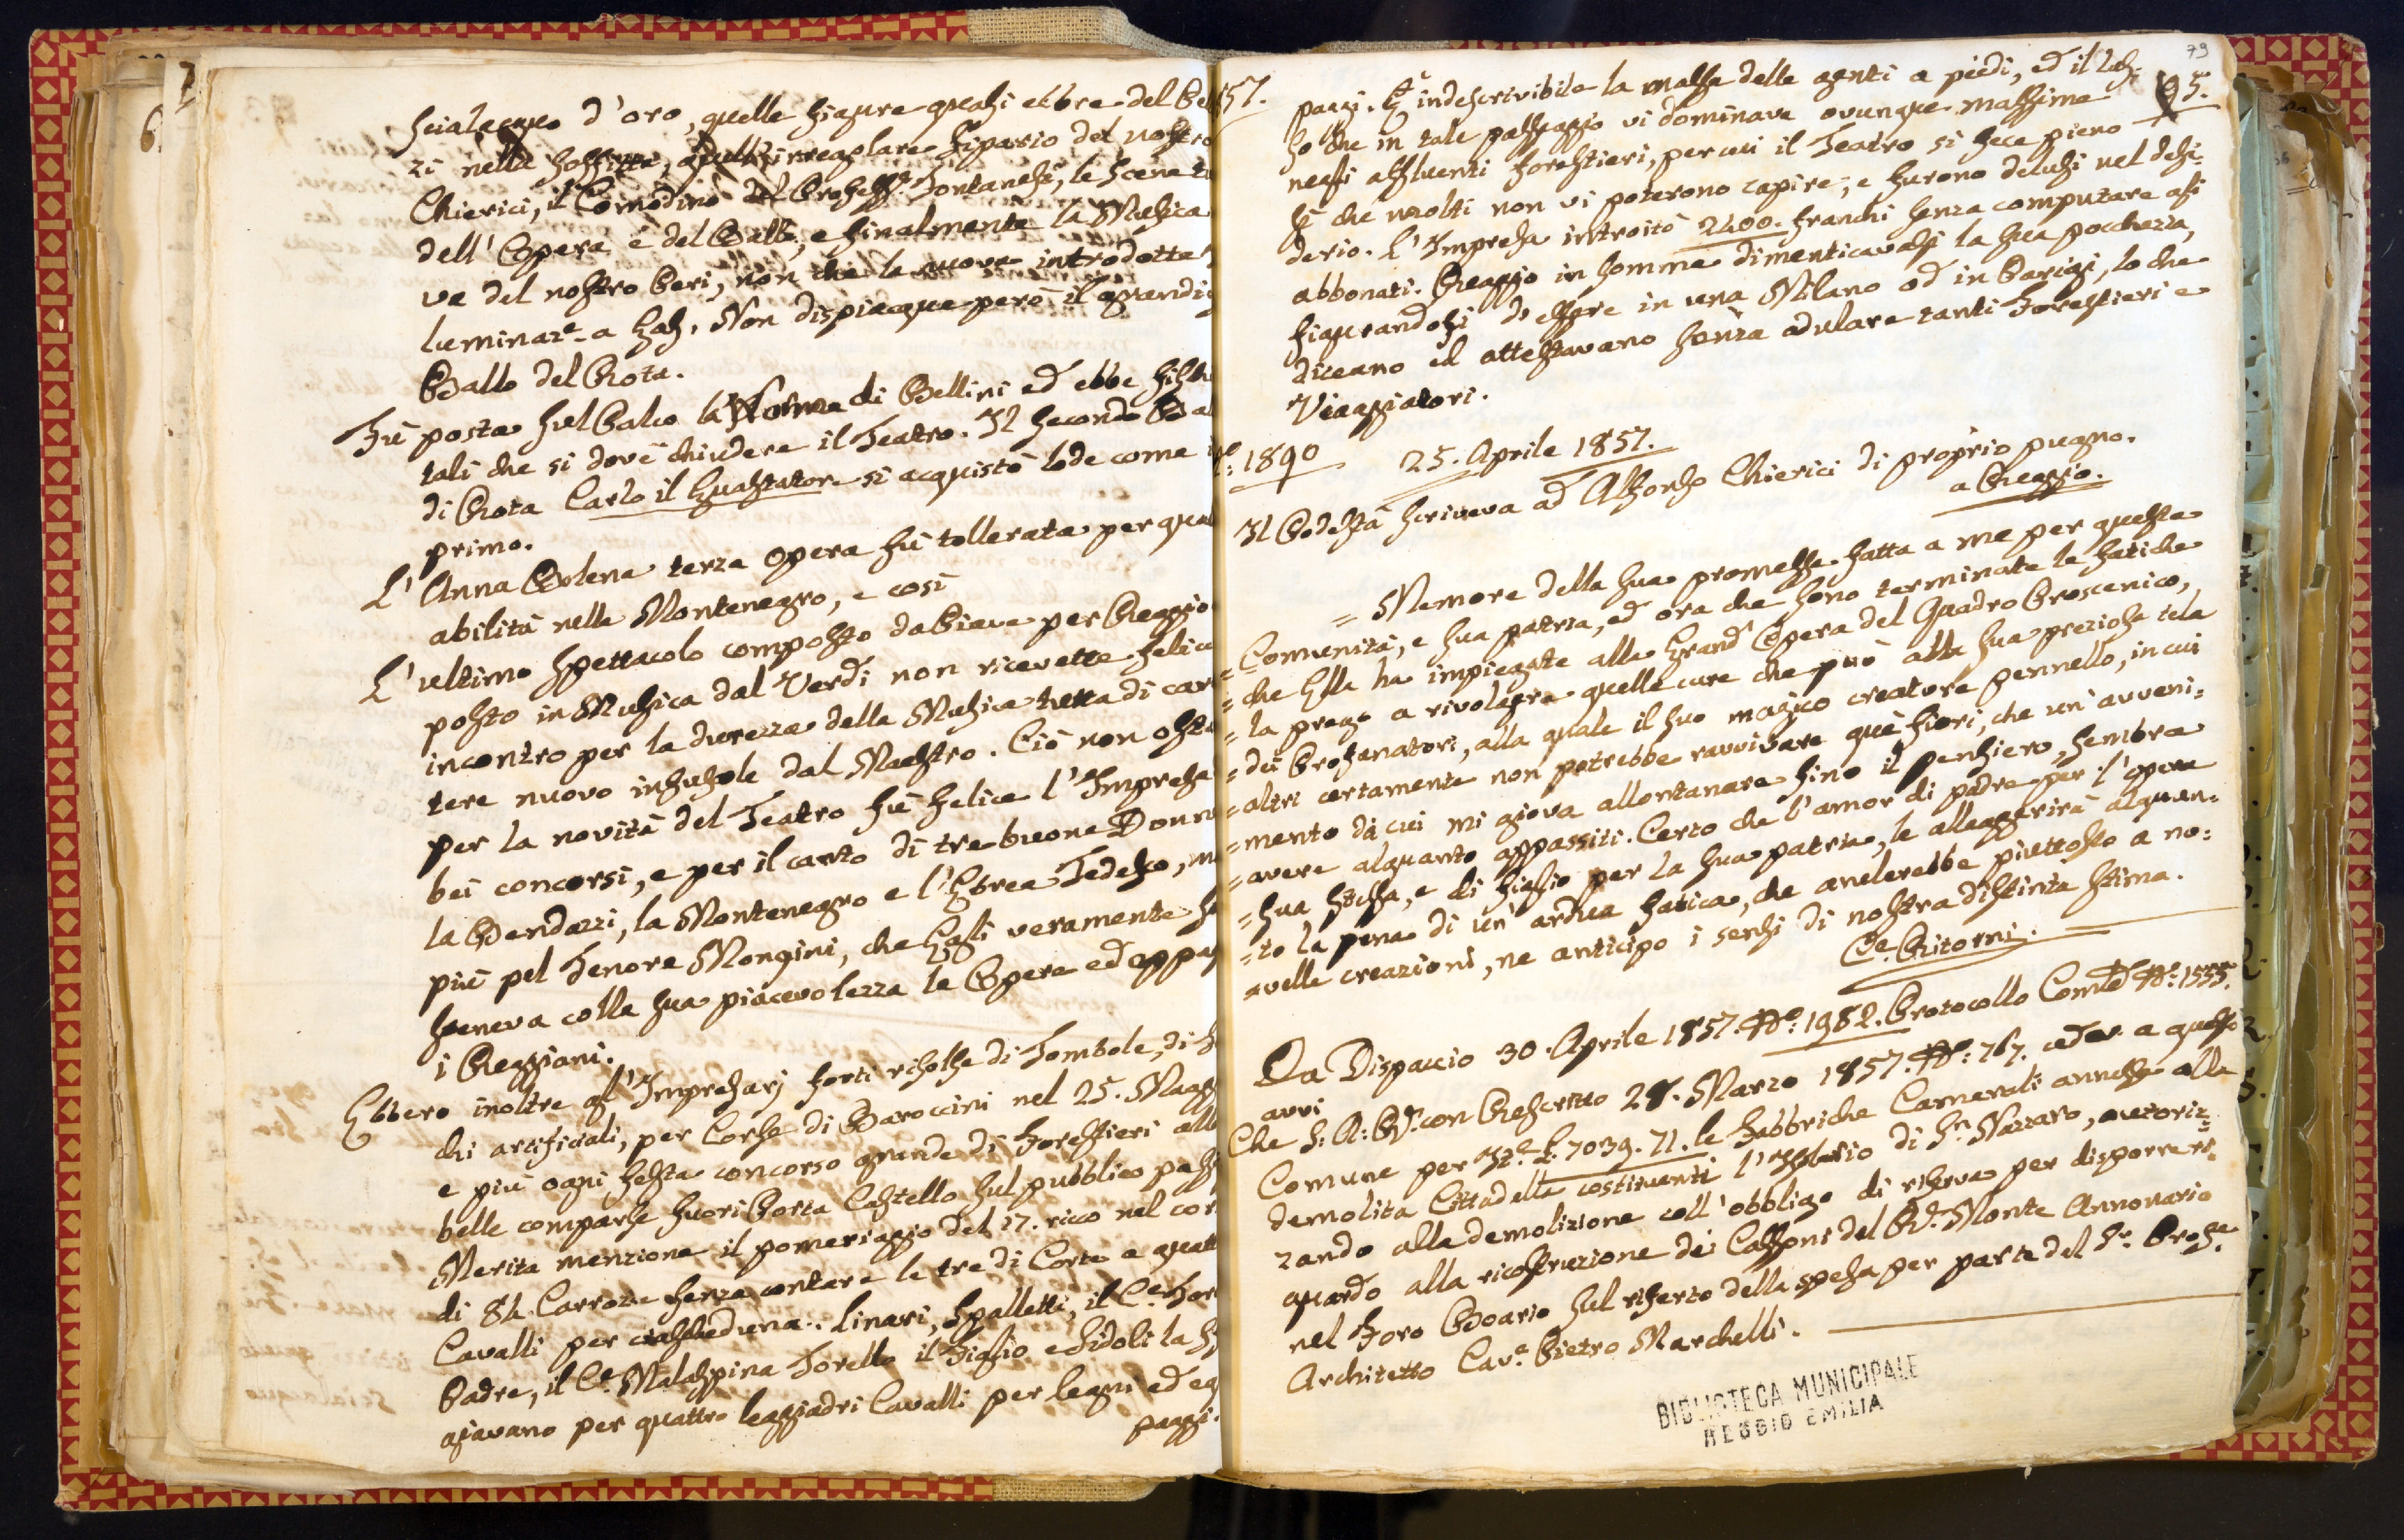 scialacquo d'oro, quelle figure quasi ebbre del Be
zi nella soffitta, quell'irregolare Sipario del nostro
Chierici, il Comodino del Profess.e Fontanesi, le Scene t
dell'Opera e del Ballo, e finalmente la Musica
va del nostro Peri, non che la nuova introdotta
luminaz.e a Gas. Non dispiacque però il grandi
Ballo del Rota.
Fù posta sul Palco la Norma di Bellini ed ebbe fisch
tali che si dovè chiudere il Teatro. Il secondo Bal
di Rota Carlo il Guastatore si acquistò lode come i
primo.
L'Anna Bolena terza Opera fù tollerata per qual
abilità nella Montenegro, e così
L'ultimo Spettacolo composto da Piave per Reggio
posto in Musica dal Verdi non ricevette felice
incontro per la durezza della Musica tutta di car
tere nuovo infusole dal Maestro. Ciò non osta
per la novità del Teatro fù felice l'Impresa
bei concorsi, e per il canto di tre buone Donn
la Bendazzi, la Montenegro e l'Ebrea Tedesco, m
più pel Tenore Mongini, che Egli veramente so
steneva colla sua piacevolezza le Opere ed appag
i Reggiani.
Ebbero inoltre gl'Impresarj forti risolse di Tombole, di F
chi artificiali, per Corse di Baroccini nel 25. Magg
e più ogni festa concorso grande di Forestieri alle
belle comparse fuori Porta Castello sul pubblico pass
Merita menzione il pomeriggio del 17. ricco nel cor
di 84. Carrozze senza contare le tre di Corte a quatt
Cavalli per ciascheduna. Linari, Spalletti, il C.e Tor
Padre, il C.e Malaspina Torello il Figlio e Sidoli la s
giavano per quattro leggiadri Cavalli per legni ed eq
paggi.
57.
79
95.
paggi. È indescrivibile la massa delle genti a piedi, ed il lus-
so che in tale passaggio vi dominava ovunque massime
negli affluenti forestieri, per cui il Teatro si fece pieno
sì che molti non vi poterono capire, e furono delusi nel desi-
derio. L'Impresa introitò 2400. franchi senza computare gli
abbonati. Reggio in somma dimenticavasi la sua pocchezza,
figurandosi d'essere in una Milano od in Parigi, lo che
diceano ed attestavano senza adulare tanti Forestieri e
Viaggiatori.
1890 25. Aprile 1857.
Il Podestà scriveva ad Alfonso Chierici di proprio pugno.
a Reggio.
= Memore della sua promessa fatta a me per questa
= Comunità, e sua patria, ed ora che sono terminate le fatiche
= che Ella ha impiegate alla Grand'Opera del Quadro Proscenico,
= la prego a rivolgere quelle cure che può alla sua preziosa tela
= dei Profanatori, alla quale il suo magico creatore pennello, in cui
= altri certamente non potrebbe ravvivare què fiori, che un'avveni=
= mento da cui mi giova allontanare fino il pensiero, sembra
= avere alquanto appassiti. Certo che l'amor di padre per l'opera
= sua stessa, e di figlio per la sua patria, le alleggerirà alquan-
= to la pena di un'ardua fatica, che anelerebbe piuttosto a no=
= velle creazioni, ne anticipo i sensi di nostra distinta stima.
C.e Ritorni.
Da Dispaccio 30. Aprile 1857. N.o: 1982. Protocollo Com.le N.o: 1555.
avvi
Che S: A: R. con Rescritto 28. Marzo 1857. N.o: 767. cedev. a questo
Comune per It.e L. 7039. 71. le Fabbriche Camerali annesse alla
demolita Cittadella costituenti l'Isolario di S.n Nazzaro, autoriz-
zando alla demolizione coll'obbligo di riserva per disporre ri-
guardo alla ricostruzione dei Cassoni del R. Monte Annonario
nel Foro Boario sul riserto della spesa per parte del S.r Profe.
Architetto Cav.e Pietro Marchelli.
BIBLIOTECA MUNICIPALE
REGGIO EMILIA